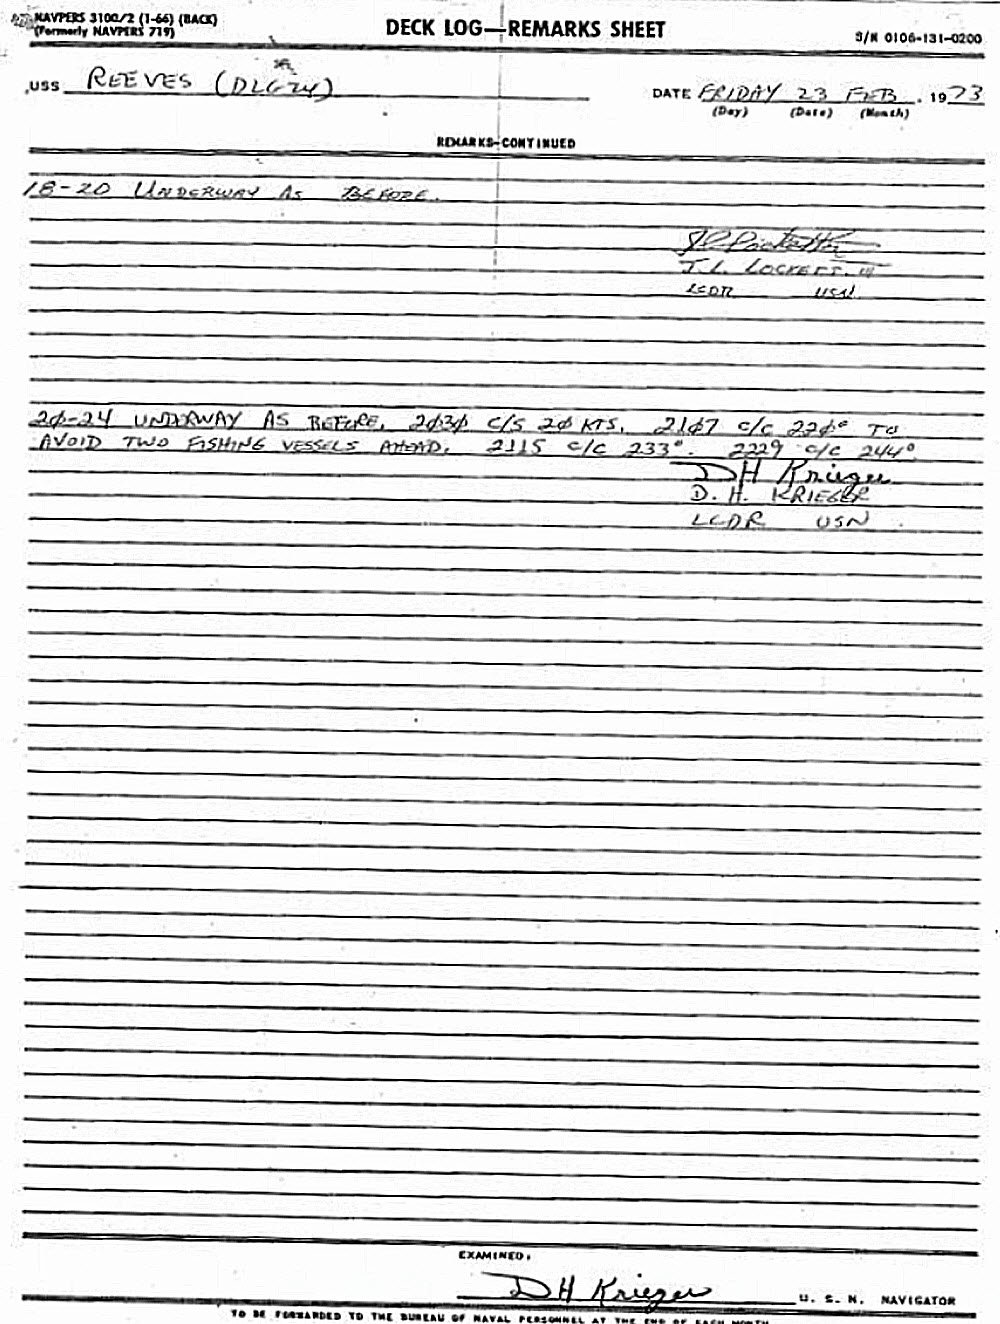 NAVPERS 3100/2 (1-66) (BACK)
(Formerly NAVPERS 719)
DECK LOG—REMARKS SHEET
S/N 0106-131-0200
USS REEVES (DLG 24)
DATE FRIDAY 23 FEB, 1973
(Day) (Date) (Month)
REMARKS—CONTINUED
18-20 UNDERWAY AS BEFORE.
LCDR USN
2Ø-24 UNDERWAY AS BEFORE. 2Ø3Ø C/S 2Ø KTS. 21Ø7 C/C 22Ø° TO
AVOID TWO FISHING VESSELS AHEAD. 2115 C/C 233°. 2229 C/C 244°.
DH Krieger
D. H. KRIEGER
LCDR USN
EXAMINED:
DH Krieger U. S. N. NAVIGATOR
TO BE FORWARDED TO THE BUREAU OF NAVAL PERSONNEL AT THE END OF EACH MONTH